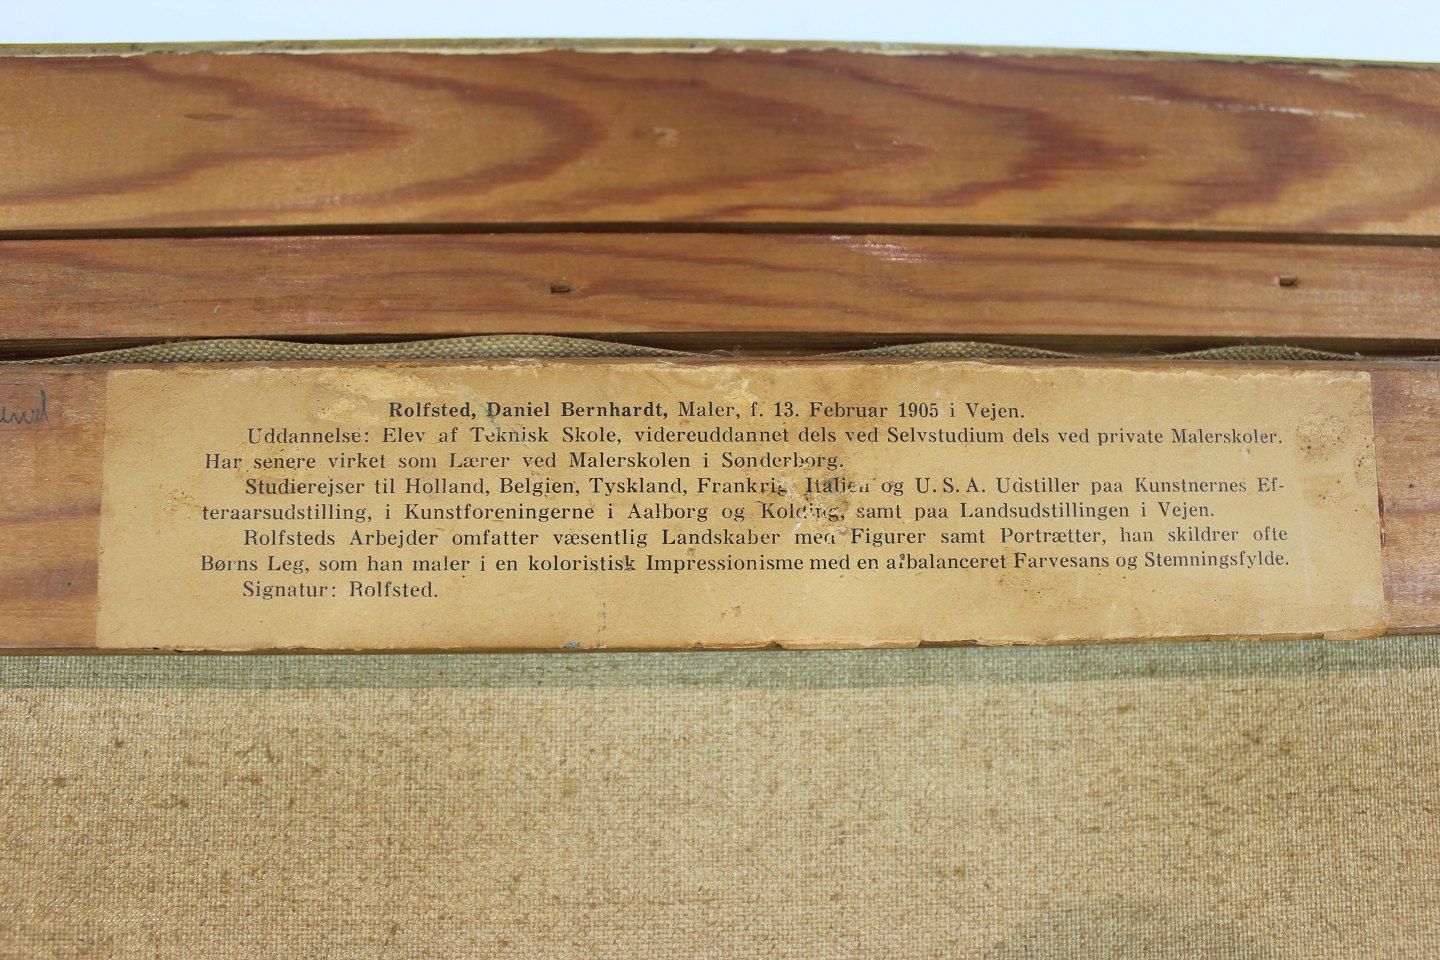 Rolfsted, Daniel Bernhardt, Maler, f. 13. Februar 1905 i Vejen.
Uddannelse: Elev af Teknisk Skole, videreuddannet dels ved Selvstudium dels ved private Malerskoler.
Har senere virket som Lærer ved Malerskolen i Sønderborg.
Studierejser til Holland, Belgien, Tyskland, Frankrig, Italien og U. S. A. Udstiller paa Kunstnernes Ef-
teraarsudstilling, i Kunstforeningerne i Aalborg og Kolding, samt paa Landsudstillingen i Vejen.
Rolfsteds Arbejder omfatter væsentlig Landskaber med Figurer samt Portrætter, han skildrer ofte
Børns Leg, som han maler i en koloristisk Impressionisme med en afbalanceret Farvesans og Stemningsfylde.
Signatur: Rolfsted.